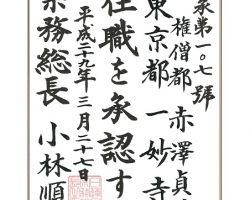 承第一〇七號
権僧都 赤澤貞
東京都 一妙寺
住職を承認す
平成二十九年三月二十七日
務総長 小林順